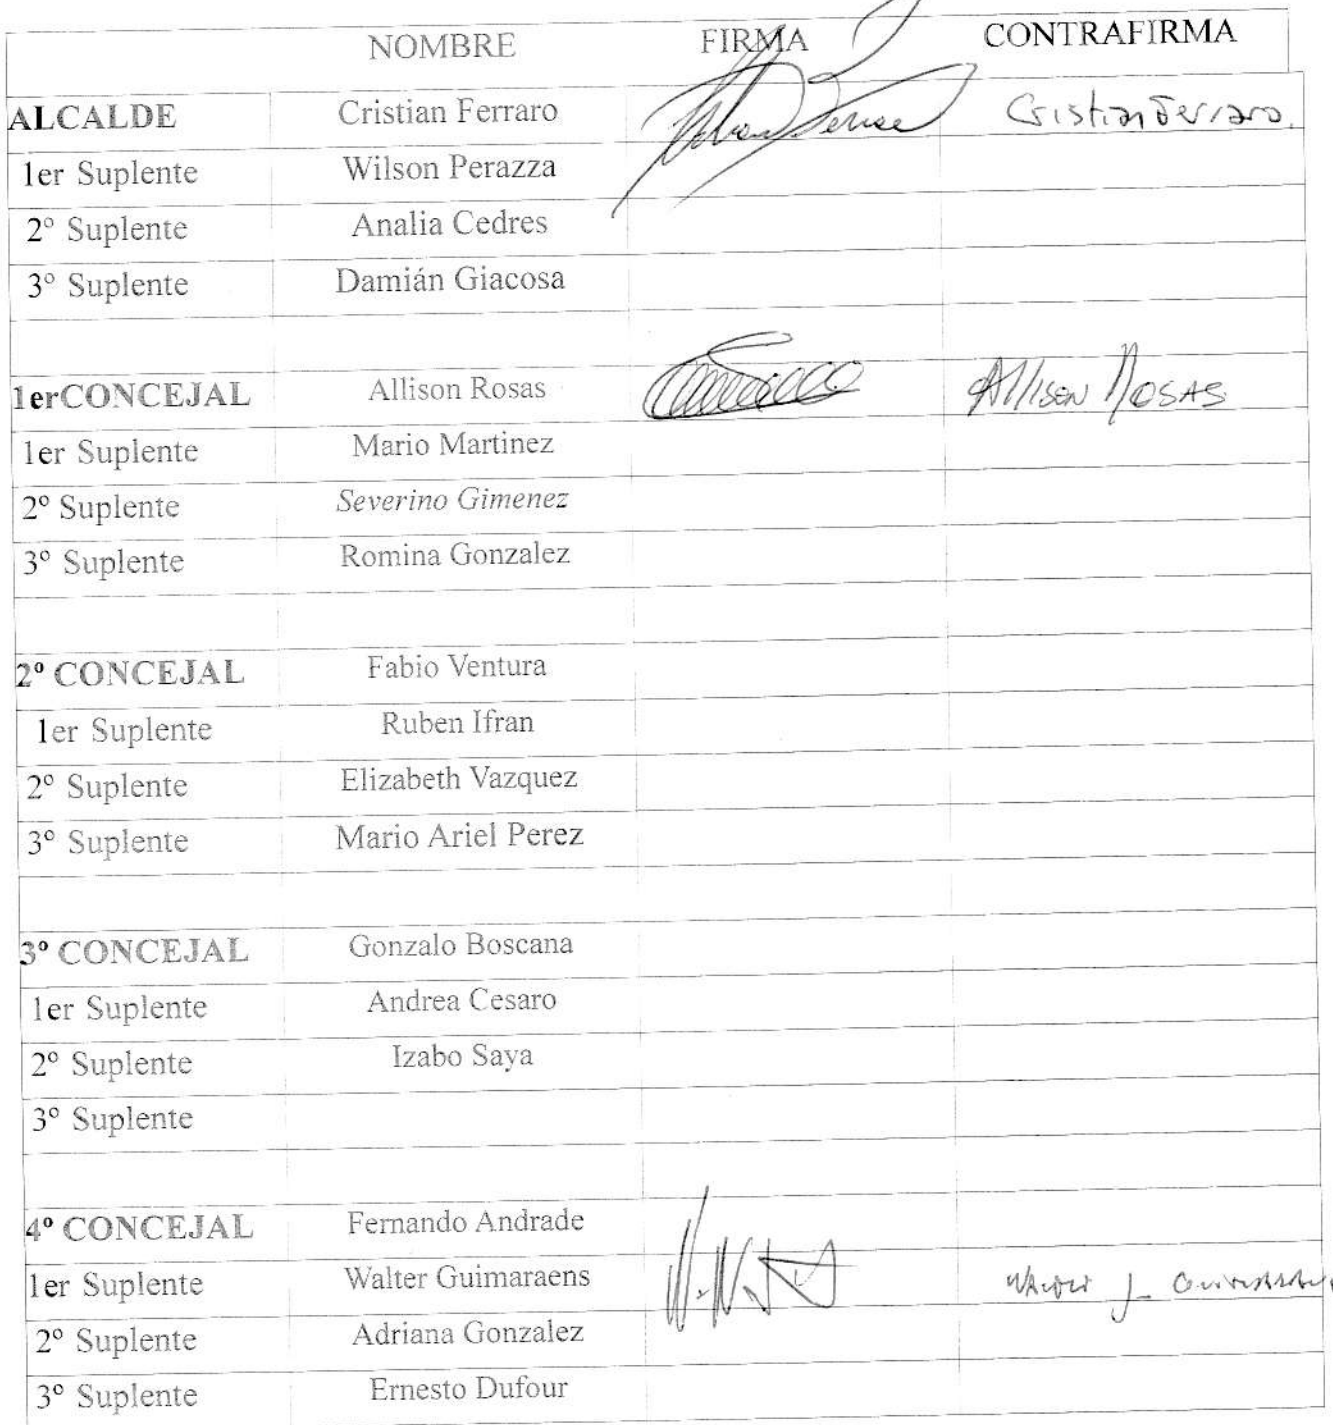 NOMBRE FIRMA CONTRAFIRMA
ALCALDE Cristian Ferraro Cristian Ferraro.
1er Suplente Wilson Perazza
2º Suplente Analia Cedres
3º Suplente Damián Giacosa
1erCONCEJAL Allison Rosas Allison Rosas
1er Suplente Mario Martinez
2º Suplente Severino Gimenez
3º Suplente Romina Gonzalez
2º CONCEJAL Fabio Ventura
1er Suplente Ruben Ifran
2º Suplente Elizabeth Vazquez
3º Suplente Mario Ariel Perez
3º CONCEJAL Gonzalo Boscana
1er Suplente Andrea Cesaro
2º Suplente Izabo Saya
3º Suplente
4º CONCEJAL Fernando Andrade
1er Suplente Walter Guimaraens Walter J.
2º Suplente Adriana Gonzalez
3º Suplente Ernesto Dufour